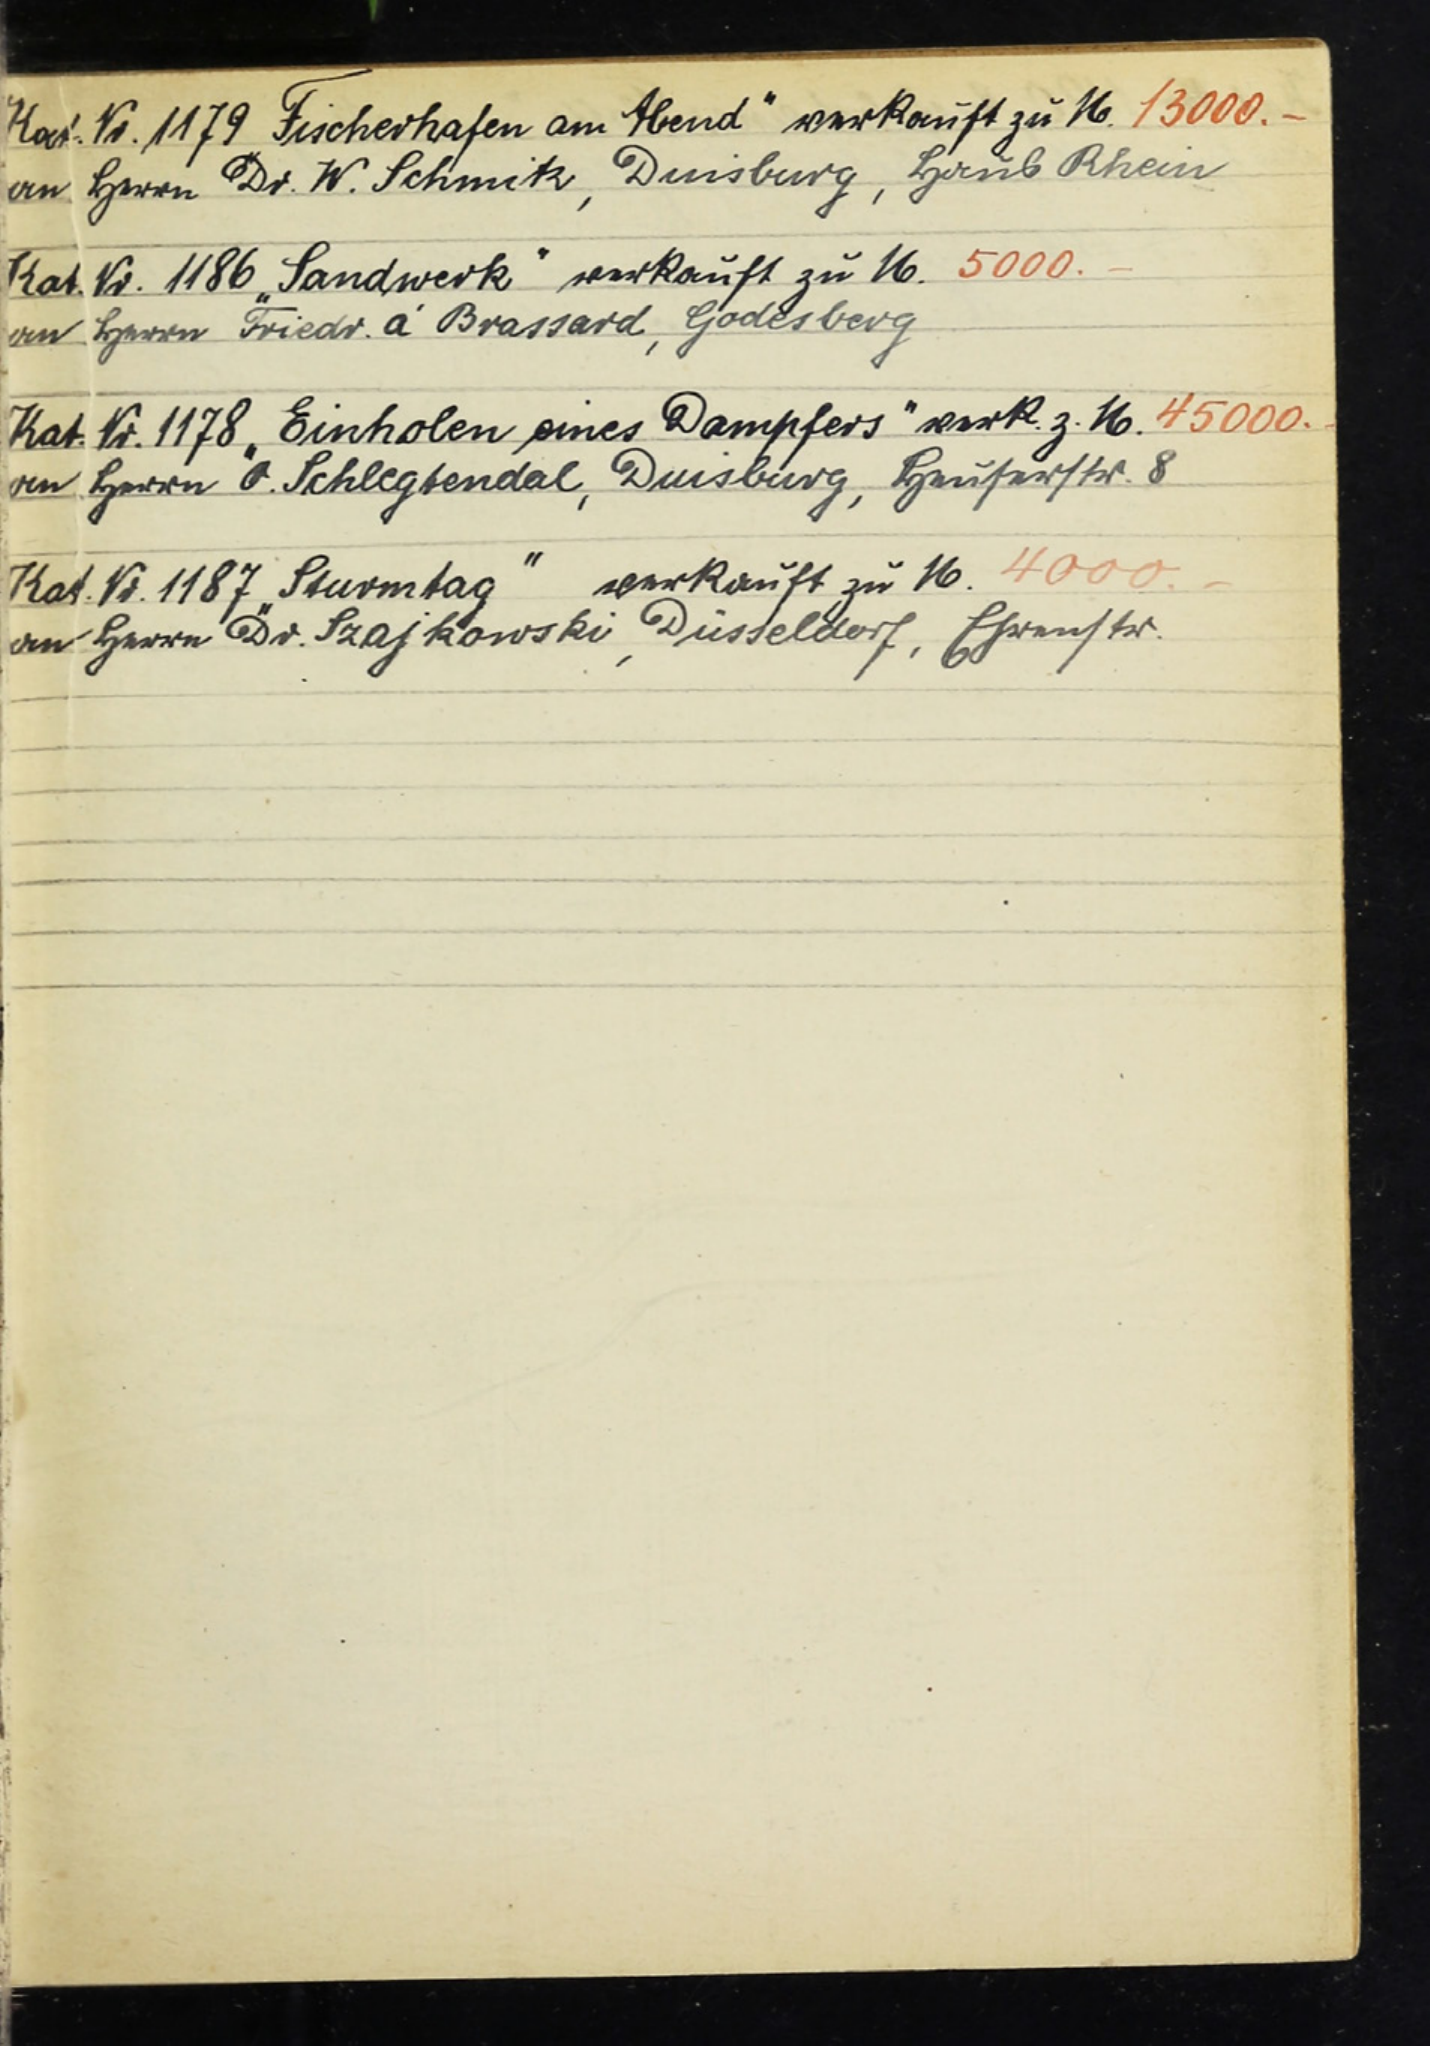 Kat. Nr. 1179 Fischerhafen am Abend" verkauft zu M. 13000.-
an Herrn Dr. W. Schmitz, Duisburg, Haus Rhein
Kat. Nr. 1186 „Sandwerk" verkauft zu M. 5000.-
an Herrn Friedr. á Brassard, Godesberg
Kat. Nr. 1178 „Einholen eines Dampfers" verk. z. M. 45000.-
an Herrn O. Schlegtendal, Duisburg, Heuserstr. 8
Kat. Nr. 1187 „Sturmtag" verkauft zu M. 4000.-
an Herrn Dr. Szajkowski, Düsseldorf, Ehrenstr.